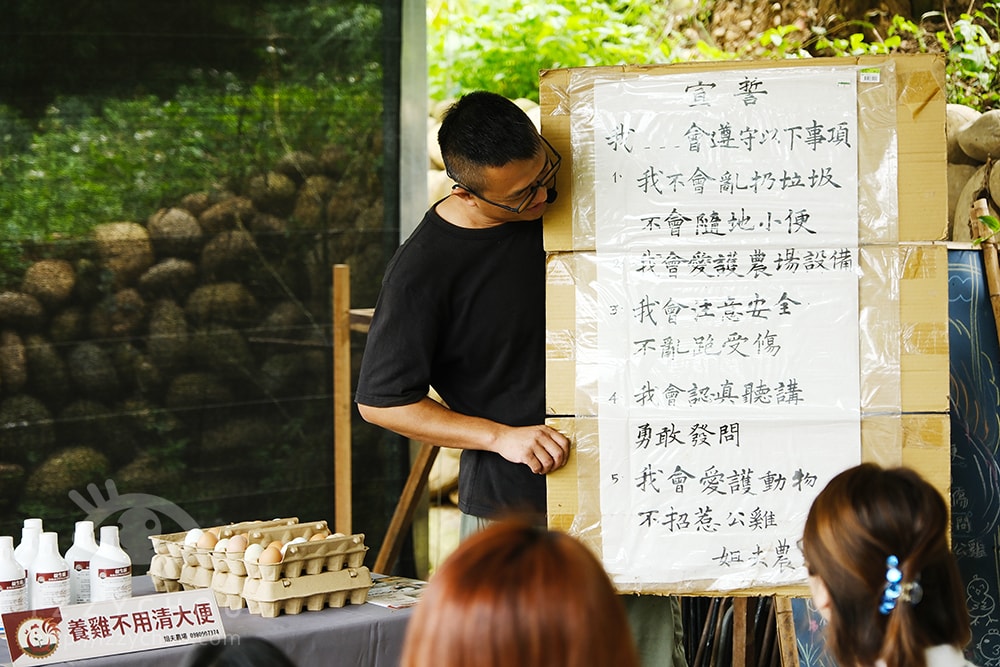 宣誓
我_ _ _會遵守以下事項
1. 我不會亂扔垃圾
不會隨地小便
2 我會愛護農場設備
3 我會注意安全
不亂跑受傷
4 我會認真聽講
勇敢發問
5 我會愛護動物
不招惹公雞
養雞不用清大便
0980957374